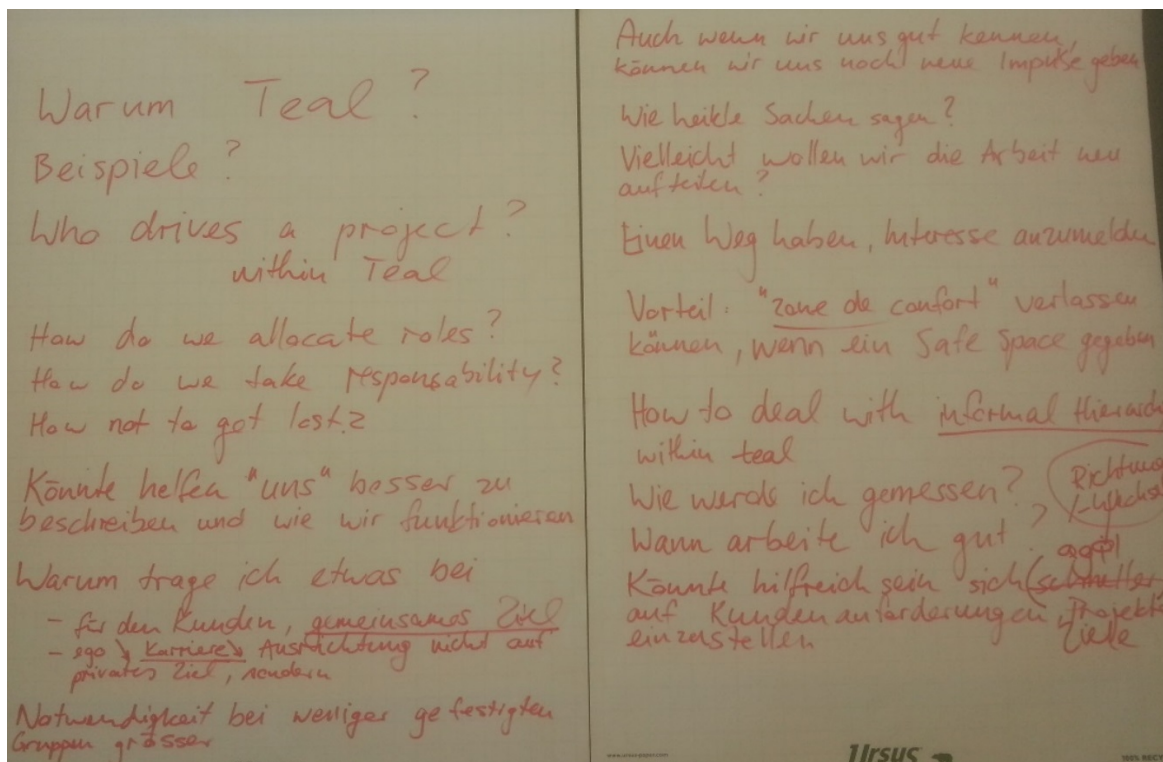 Warum Teal?
Beispiele?
Who drives a project?
within Teal
How do we allocate roles?
How do we take responsability?
How not to get lost?
Könnte helfen "uns" besser zu
beschreiben und wie wir funktionieren
Warum trage ich etwas bei
- für den Kunden, gemeinsames Ziel
- ego ↘ Karriere ↘ Ausrichtung nicht auf
privates Ziel, sondern
Notwendigkeit bei weniger gefestigten
Gruppen grösser
Auch wenn wir uns gut kennen,
können wir uns noch neue Impulse geben
Wie heikle Sachen sagen?
Vielleicht wollen wir die Arbeit neu
aufteilen?
Einen Weg haben, Interesse anzumelden
Vorteil: "zone de confort" verlassen
können, wenn ein Safe Space gegeben
How to deal with informal Hierarch
within teal
Wie werde ich gemessen?
Richtung
/-wechsel
Wann arbeite ich gut?
Könnte hilfreich sein sich (schneller
auf Kundenanforderungen, Projekt
einzustellen Ziele
Ursus